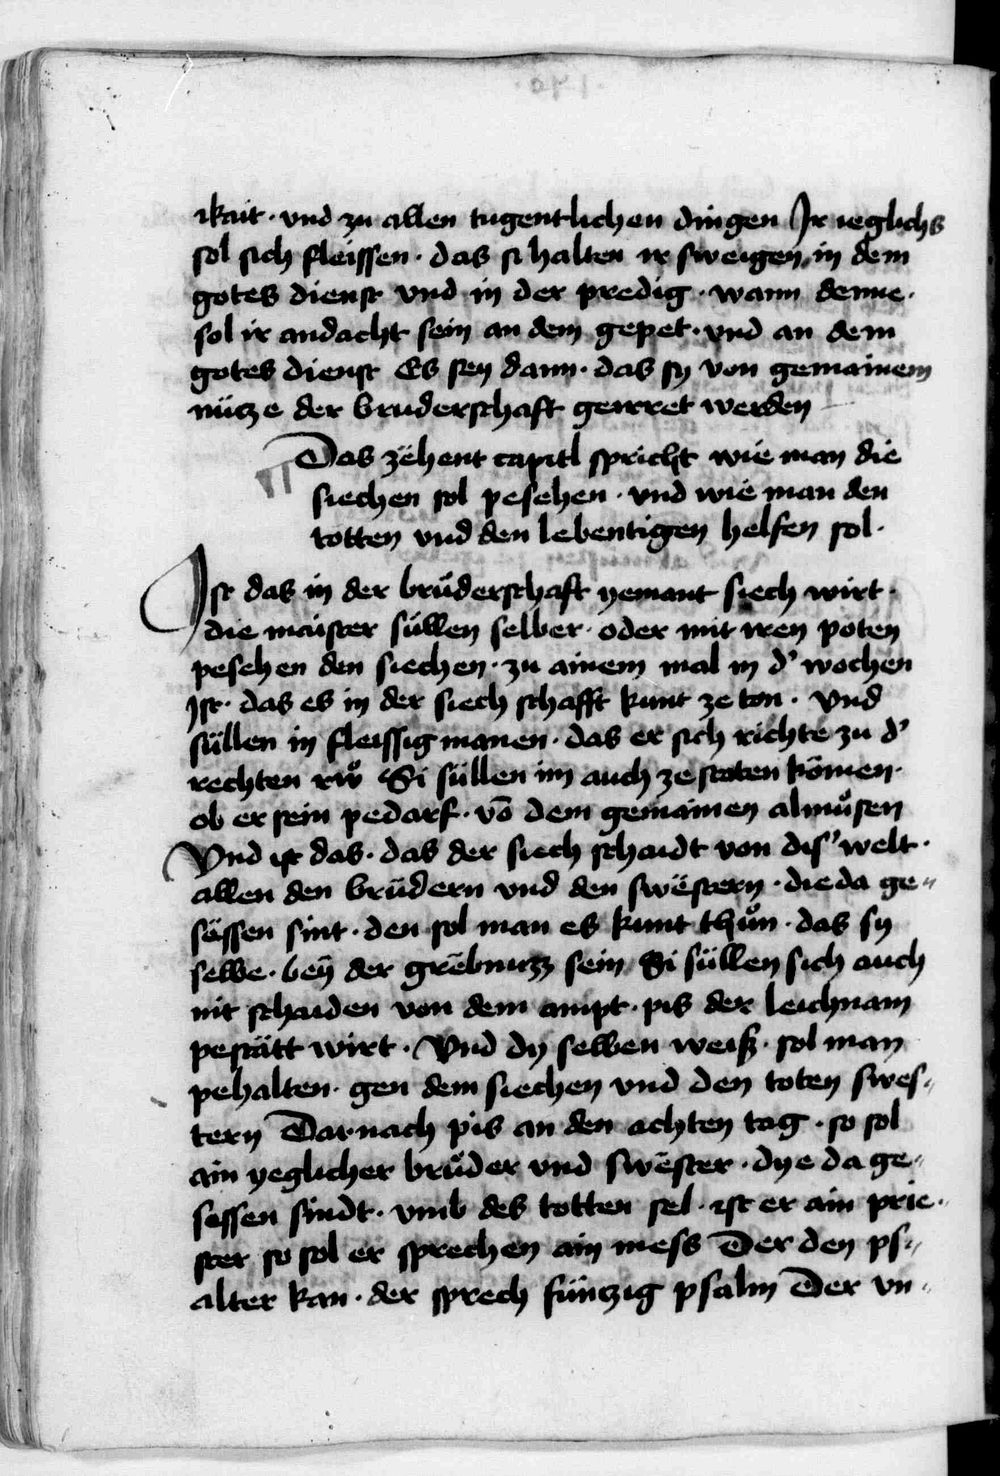 ikait · vnd zu allen tugentlichen dingen Ir ieglichs
sol sich fleissen · das si halten ir sweigen in dem
gotes dienst vnd in der predig · wann denne ·
sol ir andacht sein an dem gepet · vnd an dem
gotes dienst Es sey dann · das sy von gemainem
nütze der bruderschaft geirret werden
Das zëhent capitl spricht wie man die
siechen sol pesehen · vnd wie man den
totten vnd den lebentigen helfen sol ·
Ist das in der brüderschaft yemant siech wirt ·
die maister süllen selber · oder mit iren poten
pesehen den siechen · zu ainem mal in d' wochen
Ist · das es in der siech schafft kunt ze ton · Vnd
süllen in fleissig manen · das er sich richte zu d'
rechten rwͦ Si süllen im auch ze staten kömen ·
ob er sein pedarf · vō dem gemainen almuͦsen
Vnd ist das · das der siech schaidt von dis' welt ·
allen den brüdern vnd den swëstern · die da ge„
sässen sint · den sol man es kunt thuͦn · das sy
selbe · beÿ der grëbnuzz sein Si süllen sich auch
nit schaiden von dem ampt · pis der leichnam
pestätt wirt · Vnd dy selben weiß · sol man
pehalten · gen dem siechen vnd den toten swes„
tern Darnach pis an den achten tag · so sol
ain yeglicher brüder vnd swëster · dye da ge„
sessen sindt · vmb des totten sel · ist er ain prie„
ster so sol er sprechen ain mess Der den ps„
alter kan · der sprech füntzig psalm Der vn„